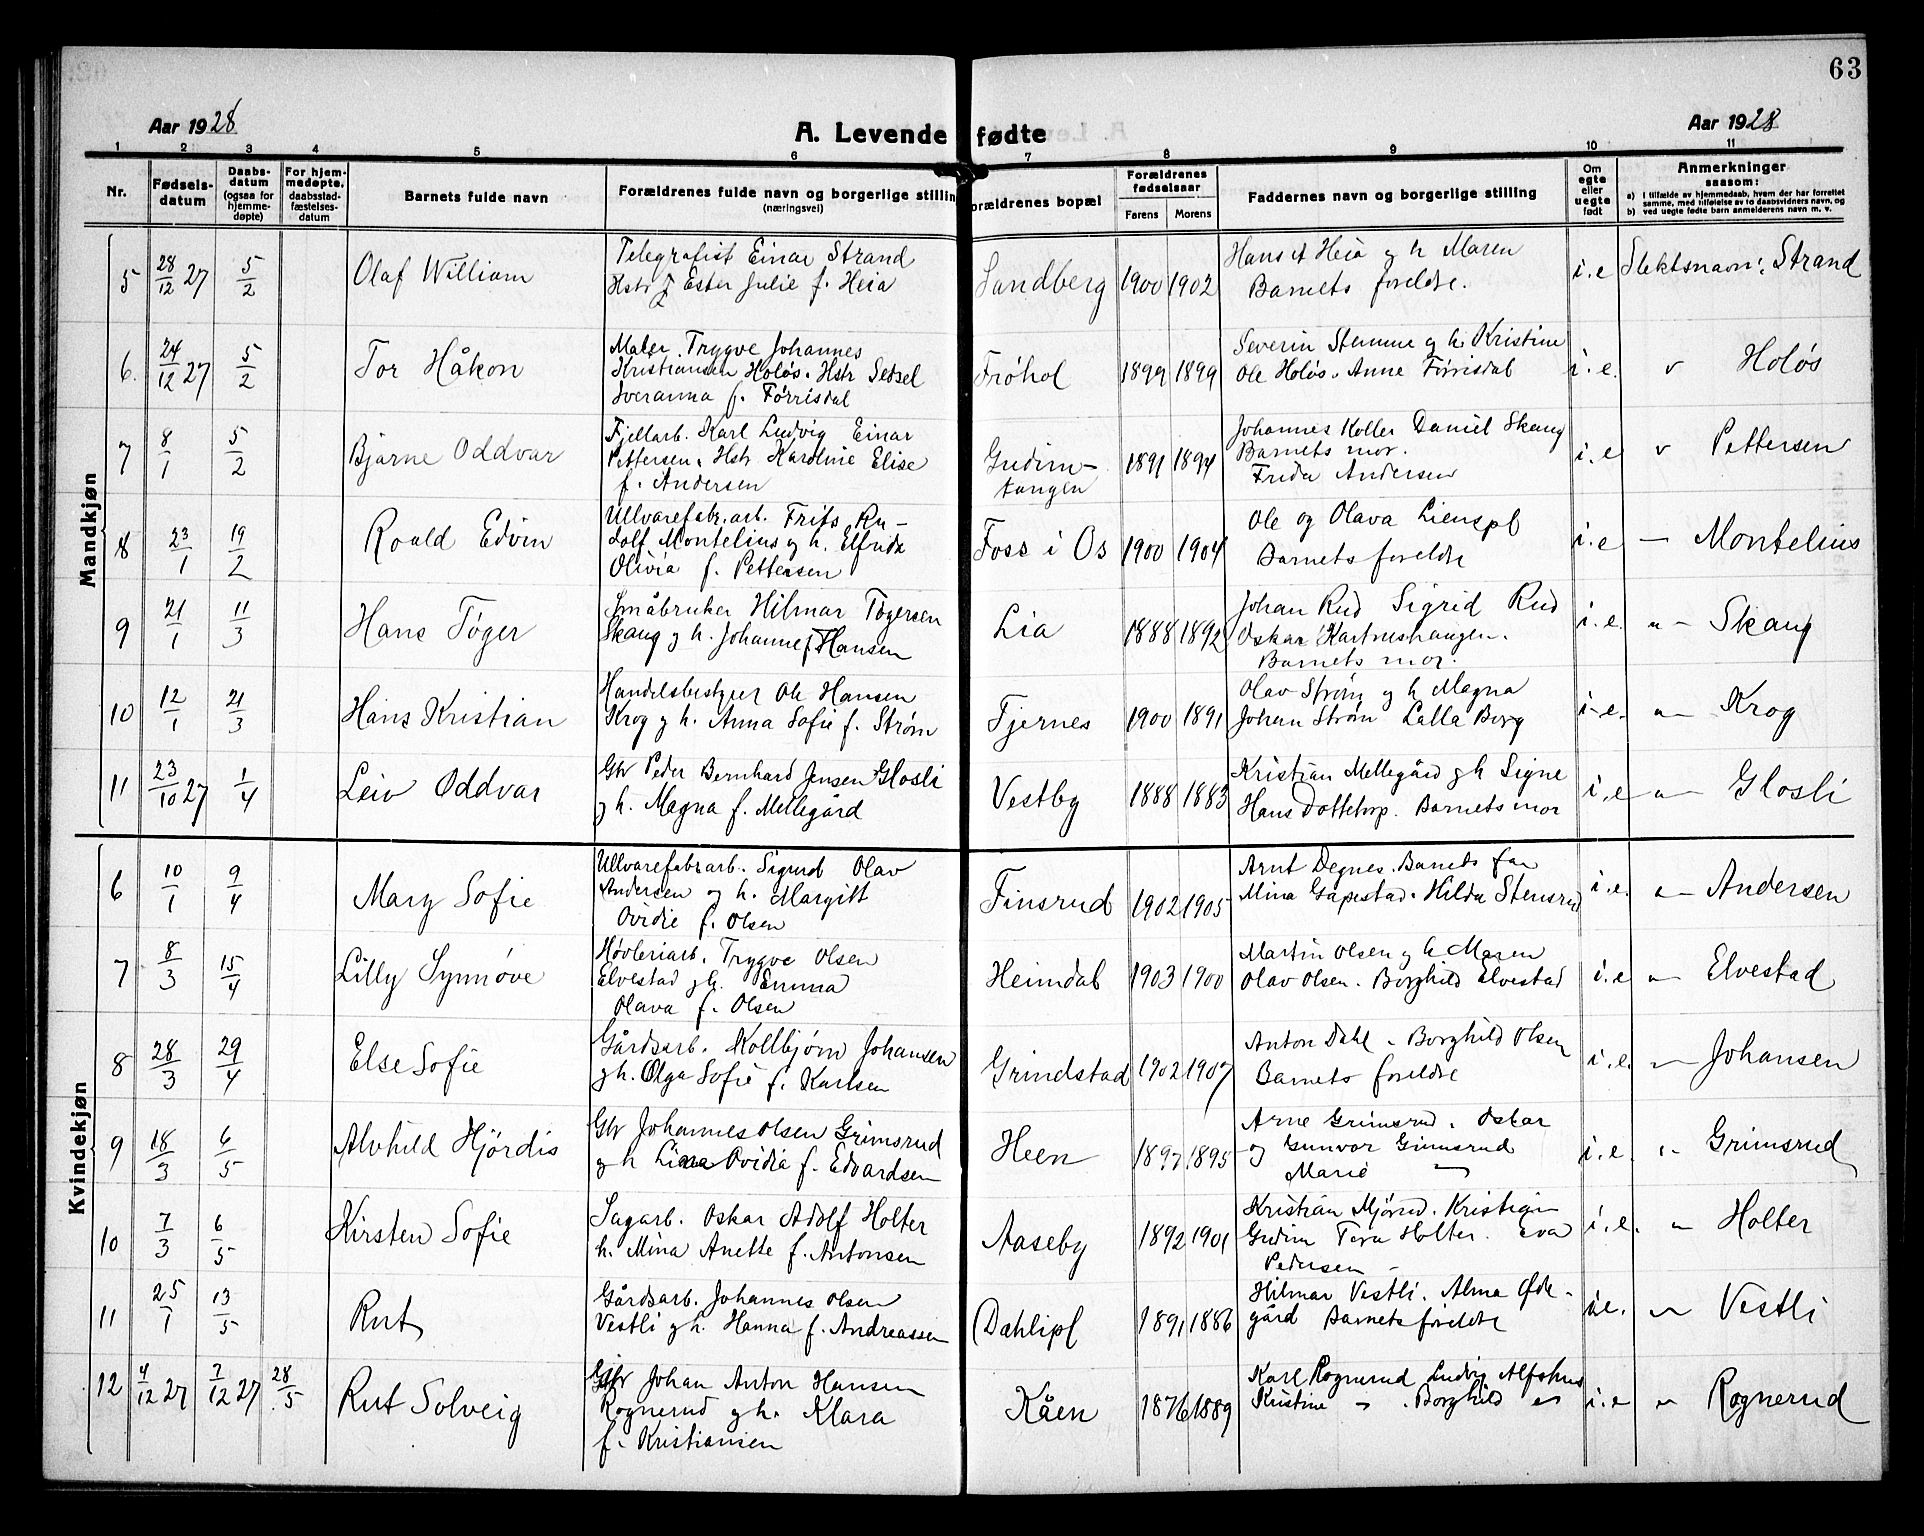 63
Aar 1928
A. Levende fødte
Aar 1928
1 2 3 4 5 6 7 8 9 10 11
Nr.
Fødsels-
datum
Daabs-
datum
(ogsaa for
hjemme-
døpte)
For hjem-
medøpte,
daabsstad-
fæstelses-
datum
Barnets fulde navn
Forældrenes fulde navn og borgerlige stilling
(næringsvei)
Forældrenes bopæl
Forældrenes
fødselsaar
Farens Morens
Faddernes navn og borgerlige stilling
Om
egte
eller
uegte
født
Anmerkninger
saasom:
a) I tilfælde av hjemmedaab, hvem der har forrettet
samme, med tilføielse av to daabsvidners navn, og
b) ved uegte fødte barn anmelderens navn m. v.
Mandkjøn
5 28/12 27 5/2 Olaf William
Telegrafist Einar Strand
Hstr Ester Julie f. Heia
Sandberg 1900 1902
Hans A Heia og h Maren
Barnets foreldre.
i.e Slektsnavn: Strand
6. 24/12 27 5/2 Tor Håkon
Maler Trygve Johannes
Kristiansen Holøs. Hstr Sedsel
Iveranna f. Førrisdal
Frøhol 1899 1899
Severin Stemme og h. Kristine
Ole Holøs. Anne Førrisdal
i.e. " Holøs
7 8/1 5/2 Bjarne Oddvar
Fjellarb. Karl Ludvig Einar
Pettersen. Hstr Karoline Elise
f. Andersen
Gudim-
tangen
1891 1894
Johannes Koller Daniel Skaug
Barnets mor.
Frida Andersen
i.e " Pettersen
8 23/1 19/2 Roald Edvin
Ullvarefabr.arb. Frits Ru-
dolf Montelius og h. Elfrida
Olivia f. Pettersen
Foss i Os 1900 1904
Ole og Olava Lienspl
Barnets foreldre
i.e — Montelius
9 21/1 11/3 Hans Tøger
Småbruker Hilmar Tøgersen
Skaug og h. Johanne f. Hansen
Lia 1888 1892
Johan Rud Sigrid Rud
Oskar
Barnets mor.
i.e. "- Skaug
10 12/1 21/3 Hans Kristian
Handelsbestyrer Ole Hansen
Krog og h. Anna Sofie f. Strøm
Tjernes 1900 1891
Olav Strøm og h Magna
Johan Strøm Lalla Borg
i-e. "- Krog
11 23/10 27 1/4 Leiv Oddvar
Gbr Peder Bernhard Jensen Glosli
og h. Magna f. Mellegård
Vestby 1888 1883
Kristian Mellegård og h Signe
Hans Dottetorp. Barnets mor
i.e "- Glosli
Kvindekjøn
6 10/1 9/4 Mary Sofie
Ullvarefabrarb. Sigurd Olav
Andersen og h. Margitt
Ovidie f. Olsen
Finsrud 1902 1905
Arnt Degnes. Barnets far
Mina Gapestad. Hilda Stensrud
i.e. "- Andersen
7 8/3 15/4 Lilly Synnøve
Høvleriarb. Trygve Olsen
Elvestad og h. Emma
Olava f. Olsen
Heimdal 1903 1900
Martin Olsen og h Maren
Olav Olsen. Borghild Elvestad
i.e "- Elvestad
8 28/3 29/4 Else Sofie
Gårdsarb. Kollbjørn Johansen
og h. Olga Sofie f. Karlsen
Grindstad 1902 1907
Anton Dahl. Borghild Olsen
Barnets foreldre
i.e. "- Johansen
9 18/3 6/5 Alvhild Hjørdis
Gbr Johannes Olsen Grimsrud
og h Lina Ovidia f. Edvardsen
Heen 1897 1895
Arne Grimsrud. Oskar
og Gunvor Grimsrud
Marie "
i.e. "- Grimsrud
10 7/3 6/5 Kirsten Sofie
Sagarb. Oskar Adolf Holter
h. Mina Anette f. Antonsen
Aaseby 1892 1901
Kristian Mjørud.
Gudim Tora Holter. Eva
Pedersen -
i.e. "- Holter
11 25/1 13/5 Rut
Gårdsarb. Johannes Olsen
Vestli og h. Hanna f. Andreassen
Dahlipl 1891 1886
Hilmar Vestli. Alma Øde-
gård Barnets foreldre
i.e. "- Vestli
12 4/12 27 7/12 27 28/5 Rut Solveig
Gbr Johan Anton Hansen
Rognerud og h. Klara
f. Kristiansen
Kåen 1876 1889
Karl Rognerud Ludvig Alfshus
Kristine " . Borghild "
i.e "- Rognerud